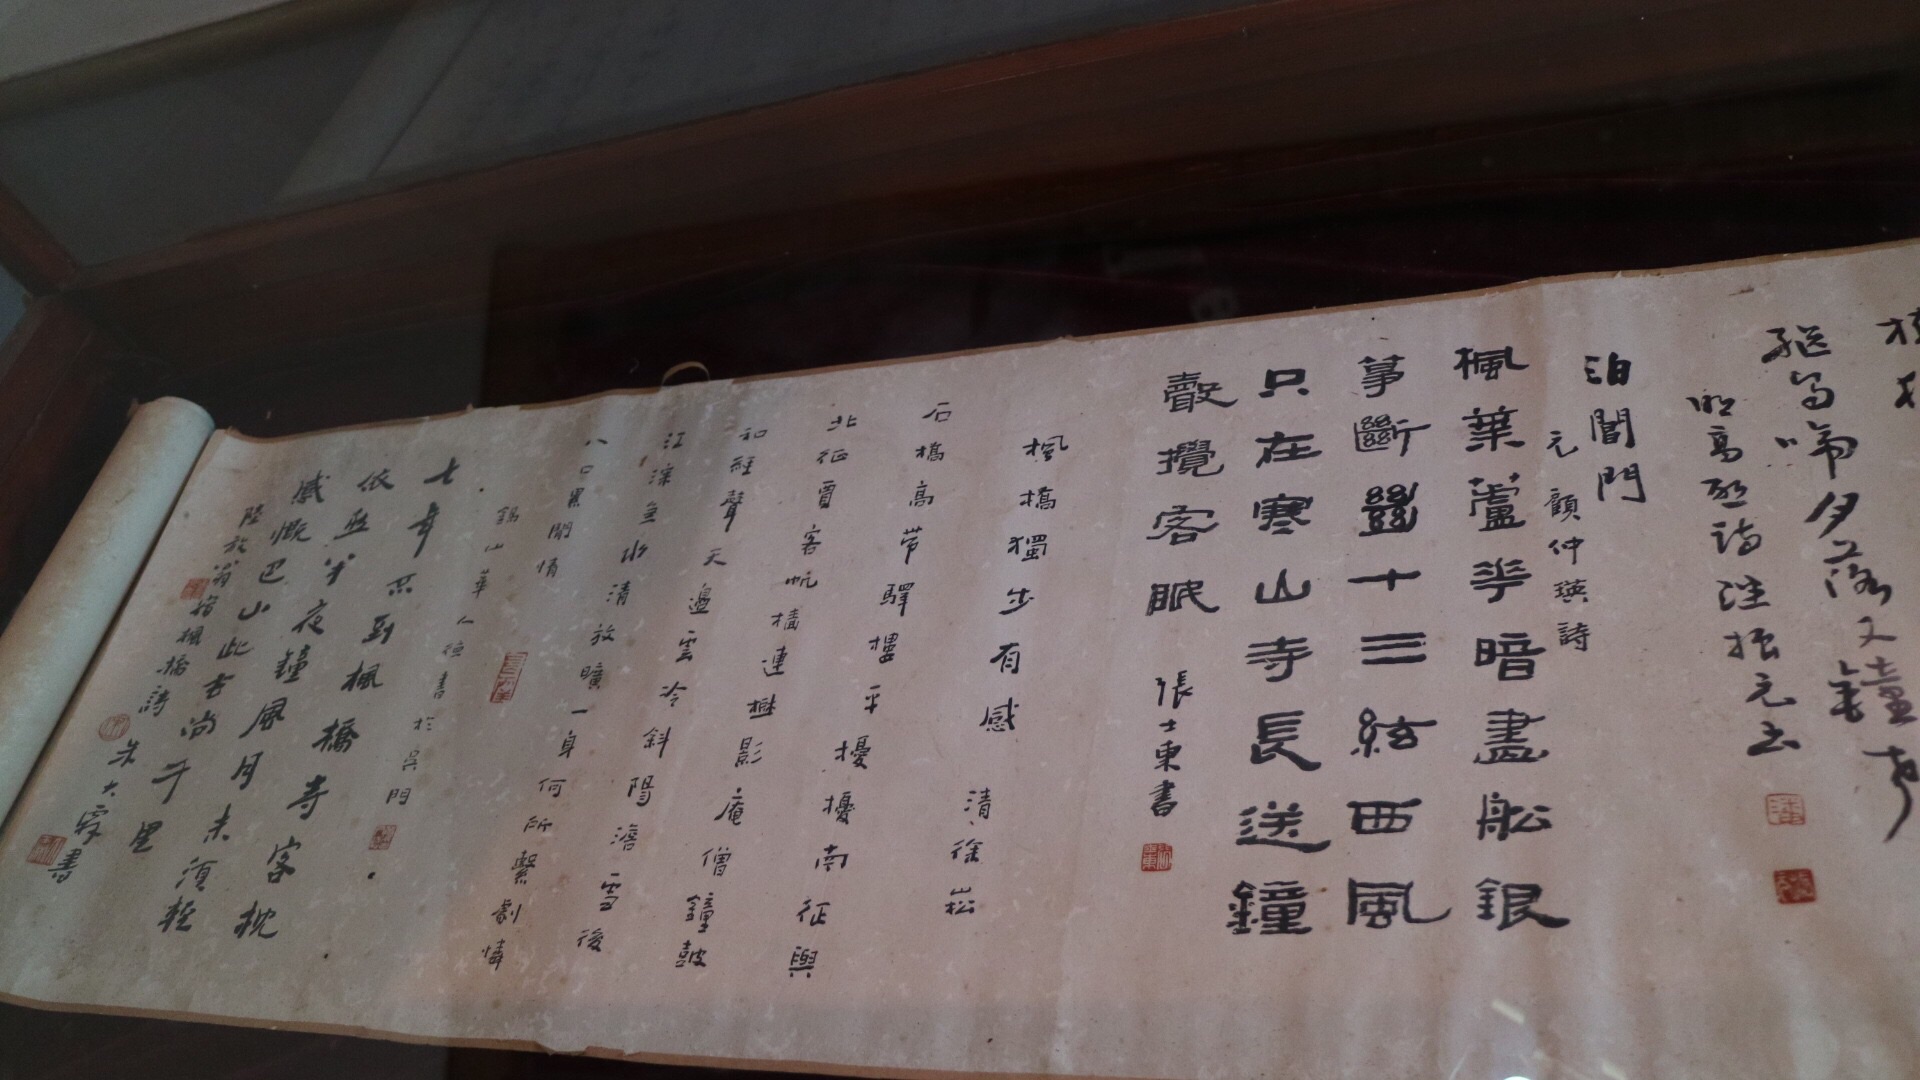 啼夕落又鐘聲
明高啟詩 汪振元書
泊閶門
元 顧仲瑛詩
楓葉蘆花暗畫船銀
箏斷絕十三絃西風
只在寒山寺長送鐘
聲攪客眠 張士東書
楓橋獨步有感 清徐崧
石橋高帶驛樓平擾擾南征與
北征賈客帆檣連樹影庵僧鐘鼓
和經聲天邊雲冷斜陽澹雪後
江深魚水清放曠一身何所繫劇憐
八口累閒情
錫山華人德書於吳門
七年不到楓橋寺客枕
依然半夜鐘風月未須輕
感慨巴山此去尚千里
陸放翁宿楓橋詩 朱大霖書